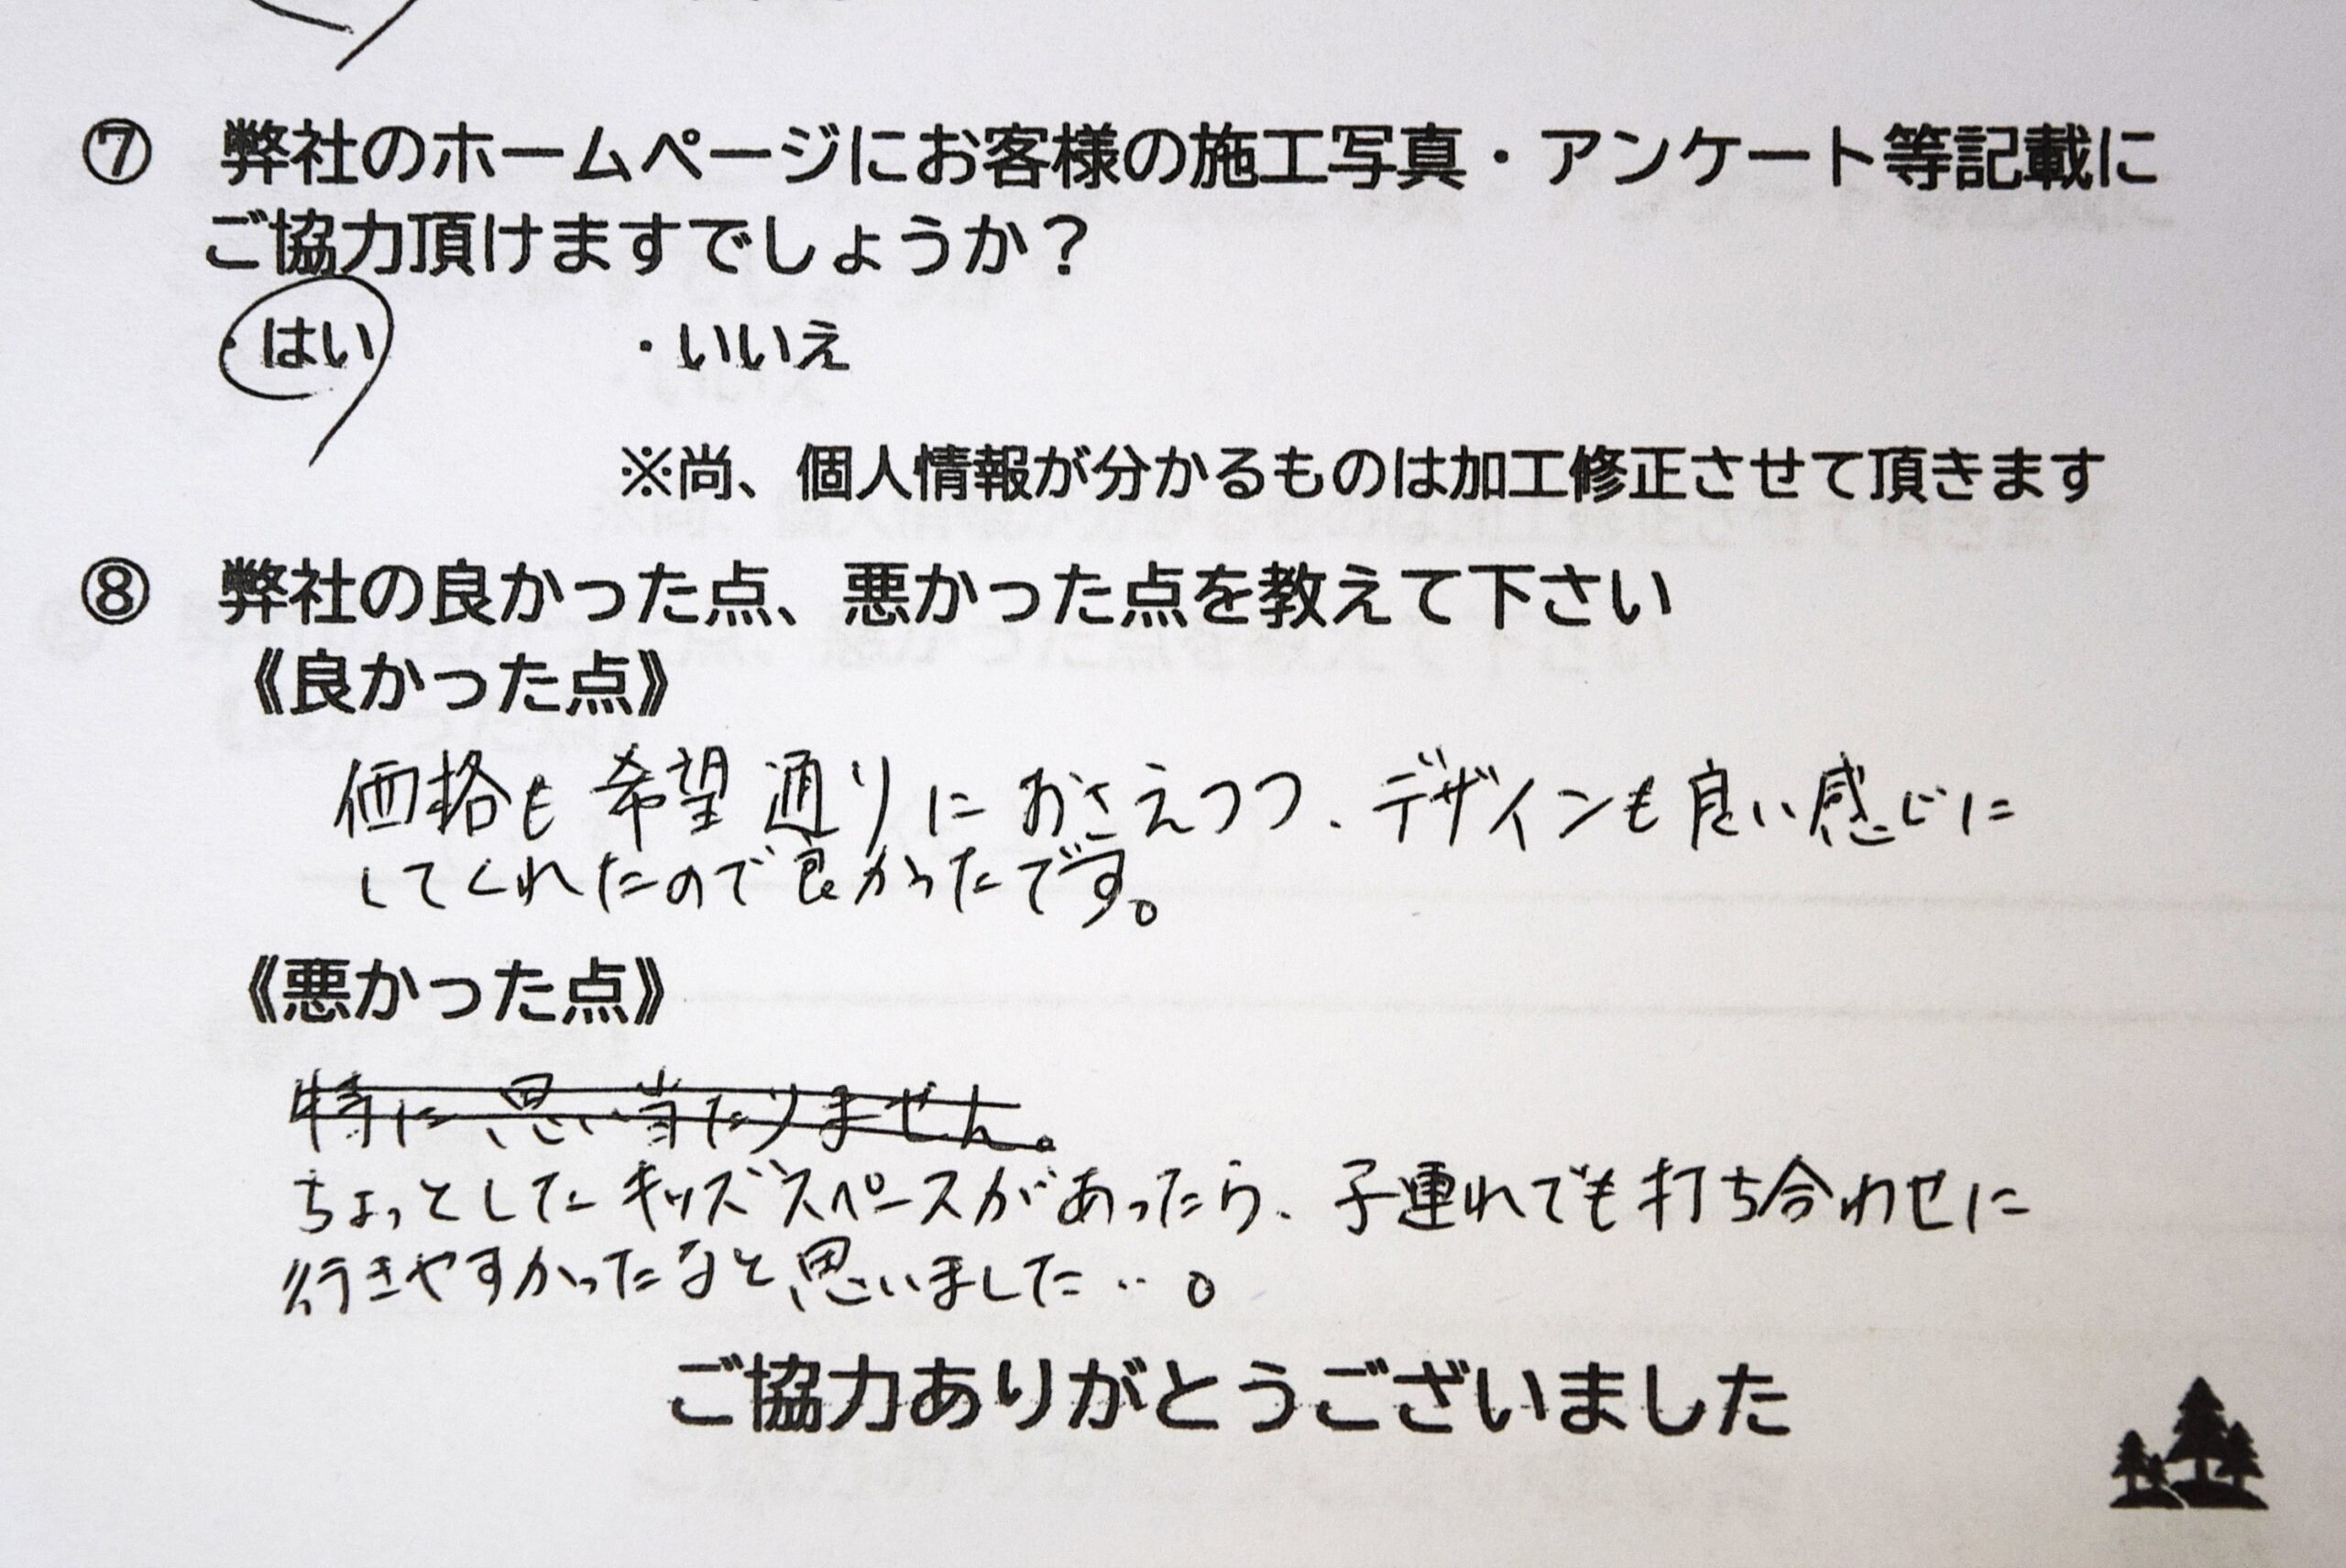 ⑦ 弊社のホームページにお客様の施工写真・アンケート等記載に
ご協力頂けますでしょうか？
・はい ・いいえ
※尚、個人情報が分かるものは加工修正させて頂きます
⑧ 弊社の良かった点、悪かった点を教えて下さい
《良かった点》
価格も希望通りにおさえつつ、デザインも良い感じに
してくれたので良かったです。
《悪かった点》
特に思い当たりません。
ちょっとしたキッズスペースがあったら、子連れでも打ち合わせに
行きやすかったなと思いました…。
ご協力ありがとうございました